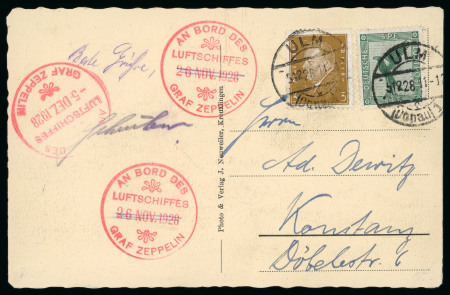 AN BORD DES
LUFTSCHIFFES
26 NOV. 1928
GRAF ZEPPELIN
LUFTSCHIFFES
-5 DEZ. 1928
GRAF ZEPPELIN
AN BORD DES
LUFTSCHIFFES
26 NOV. 1928
GRAF ZEPPELIN
Beste Grüße,
Photo & Verlag J. Neuweiler, Kreuzlingen
ULM
(Donau)
ULM
(Donau)
Herrn
Ad. Dewitz
Konstanz
Döbelestr. 6